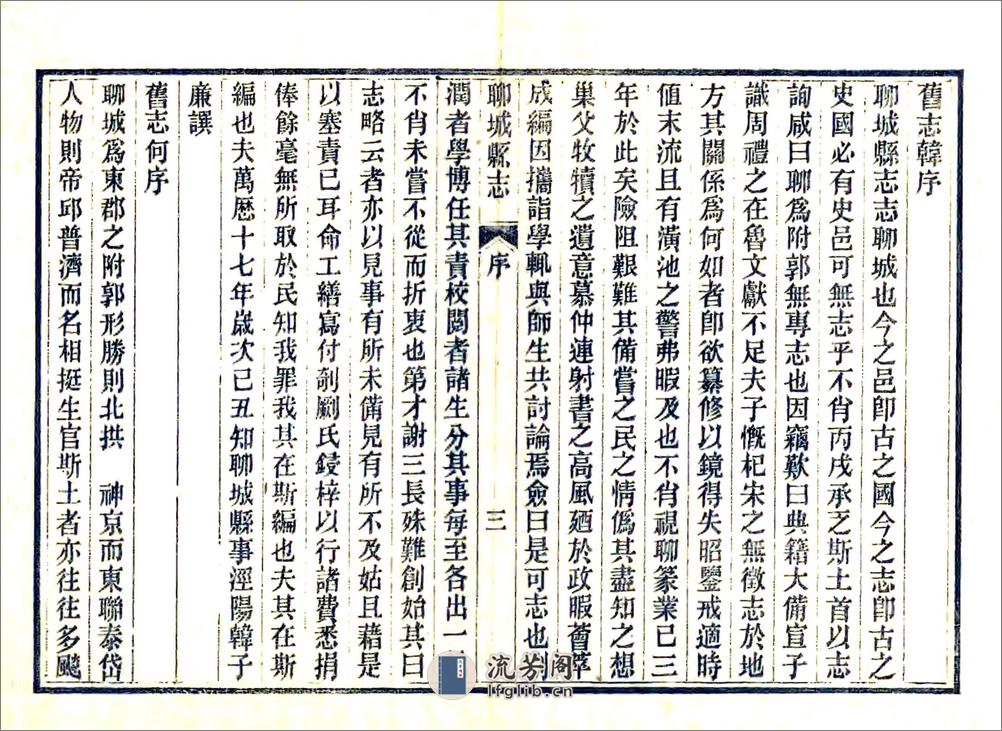 舊志韓序
聊城縣志志聊城也今之邑卽古之國今之志卽古之
史國必有史邑可無志乎不肖丙戌承乏斯土首以志
詢咸曰聊爲附郭無專志也因竊歎曰典籍大備宣子
識周禮之在魯文獻不足夫子慨杞宋之無徵志於地
方其關係爲何如者卽欲纂修以鏡得失昭鑒戒適時
值末流且有潢池之警弗暇及也不肖視聊篆業已三
年於此矣險阻艱難其備嘗之民之情僞其盡知之想
巢父牧犢之遺意慕仲連射書之高風廼於政暇薈萃
成編因攜詣學輒與師生共討論焉僉曰是可志也
聊城縣志
序
三
潤者學博任其責校閱者諸生分其事每至各出一
不肖未嘗不從而折衷也第才謝三長殊難創始其曰
志略云者亦以見事有所未備見有所不及姑且藉是
以塞責已耳命工繕寫付剞劂氏鋟梓以行諸費悉捐
俸餘毫無所取於民知我罪我其在斯編也夫其在斯
編也夫萬曆十七年歲次己丑知聊城縣事涇陽韓子
廉譔
舊志何序
聊城爲東郡之附郭形勝則北拱 神京而東聯泰岱
人物則帝邱普濟而名相挺生官斯土者亦往往多颷
流芳阁
lfglib.cn